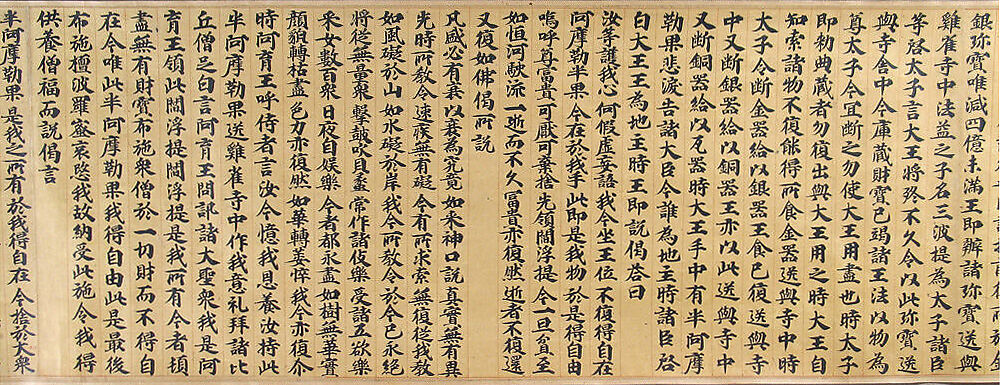 銀弥寶唯減四億未滿王即辦諸弥寶送與
雞雀寺中法益之子名三波提為太子諸臣
等啓太子言大王將終不久今以此弥寶送
與寺舍中今庫藏財寶已竭諸王法以物為
尊太子今宜斷之勿使大王用盡也時太子
即勅典藏者勿復出與大王用之時大王自
知索諸物不復能得所食金器送與寺中時
太子令斷金器給以銀器王食已復送與寺
中又斷銀器給以銅器王亦以此送與寺中
又斷銅器給以瓦器時大王手中有半阿摩
勒果悲淚告諸大臣今誰為地主時諸臣啓
白大王王為地主時王即說偈荅曰
汝等護我心 何假虛妄語 我今坐王位 不復得自在
阿摩勒半果 今在於我手 此即是我物 於是得自由
嗚呼尊富貴 可猒可棄捨 先領閻浮提 今一旦貧至
如恒河駛流 一逝而不久 富貴亦復然 逝者不復還
又復如佛偈所說
凡盛必有衰 以衰為究竟 如来神口說 真實無有異
先時所教令 速疾無有礙 今有所求索 無復從我教
如風礙於山 如水礙於岸 我今所教令 於今已永絕
將從無量衆 擊皷吹貝螺 常作諸伎樂 受諸五欲樂
婇女數百衆 日夜自娛樂 今者都永盡 如樹無華實
顏貌轉枯盡 色力亦復然 如華轉萎悴 我今亦復尒
時阿育王呼侍者言汝今憶我恩養汝持此
半阿摩勒果送雞雀寺中作我意礼拜諸比
丘僧足白言阿育王問訊諸大聖衆我是阿
育王領此閻浮提閻浮提是我所有今者頓
盡無有財寶布施衆僧於一切財而不得自
在今唯此半阿摩勒果我得自由此是最後
布施檀波羅蜜哀愍我故納受此施令我得
供養僧福而說偈言
半阿摩勒果 是我之所有 於我得自在 今捨於大衆